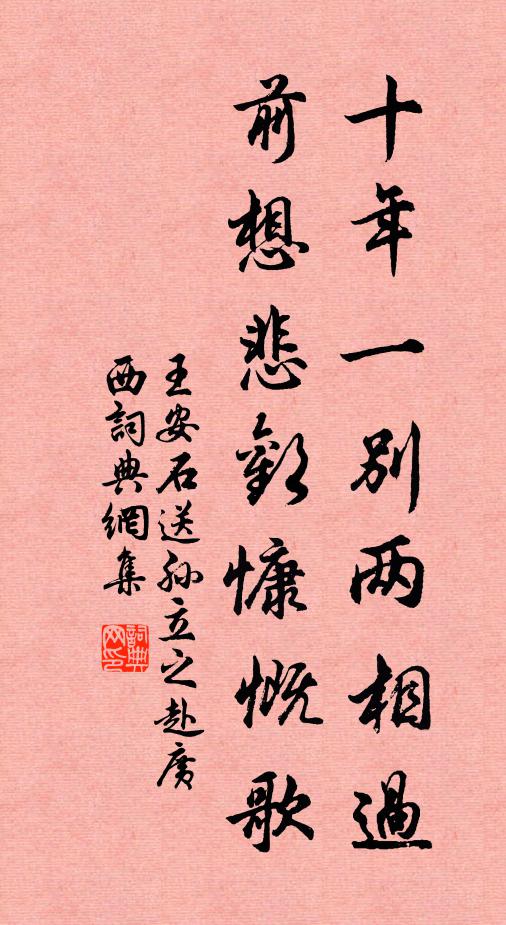 十年一别两相過
前想悲歡慷慨歌
王安石送孙立之赴廣
西詞典網集
詞典
网印